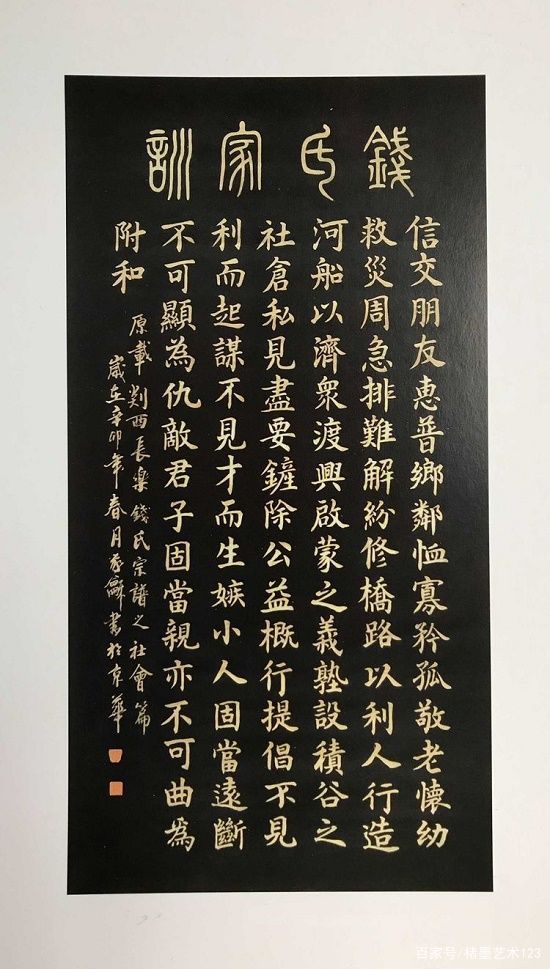 錢氏家訓
信交朋友惠普鄉鄰恤寡矜孤敬老懷幼
救災周急排難解紛修橋路以利人行造
河船以濟衆渡興啟蒙之義塾設積谷之
社倉私見盡要鏟除公益概行提倡不見
利而起謀不見才而生嫉小人固當遠斷
不可顯為仇敵君子固當親亦不可曲為
附和
原載剡西長樂錢氏宗譜之社會篇
歲在辛卯年春月龢書於京華
百家号/楮墨艺术123